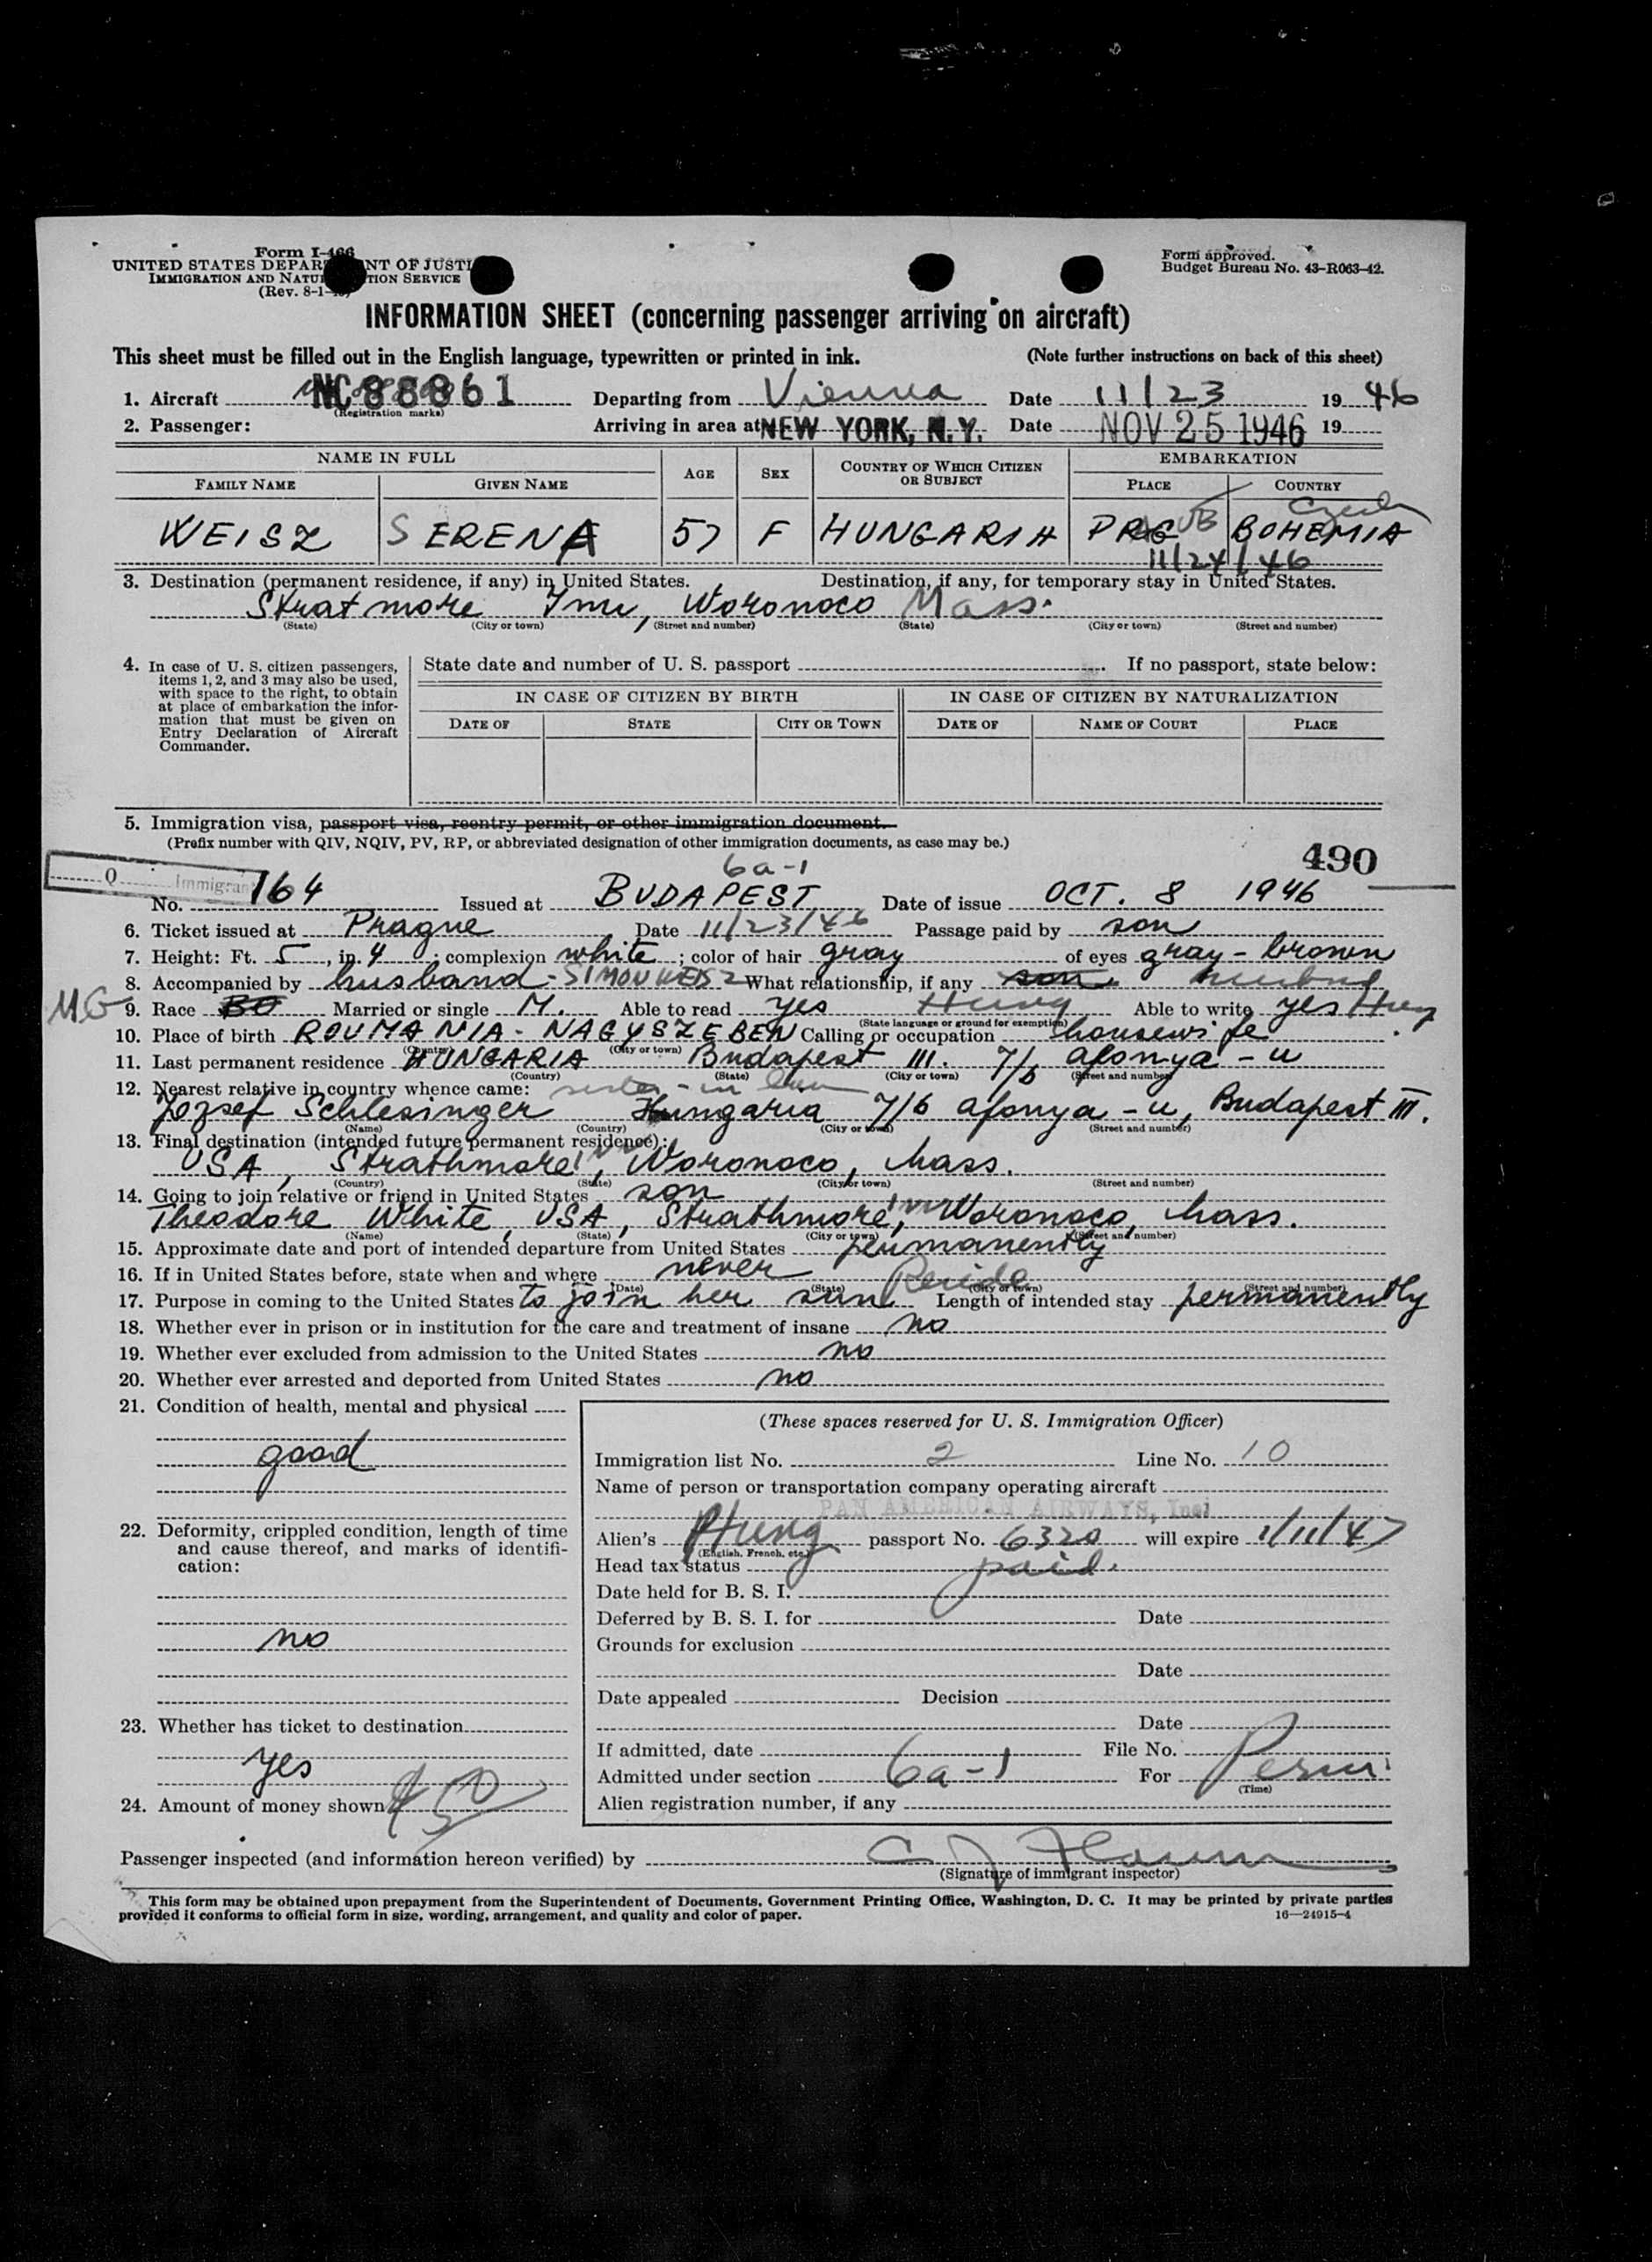 Form I-466
UNITED STATES DEPARTMENT OF JUSTICE
IMMIGRATION AND NATURALIZATION SERVICE
(Rev. 8-1-
Form approved.
Budget Bureau No. 43-R063-42.
INFORMATION SHEET (concerning passenger arriving on aircraft)
This sheet must be filled out in the English language, typewritten or printed in ink. (Note further instructions on back of this sheet)
1. Aircraft NC 88861 Departing from Vienna Date 11/23 1946
(Registration marks)
2. Passenger: Arriving in area at NEW YORK, N.Y. Date NOV 25 1946 19
NAME IN FULL AGE SEX COUNTRY OF WHICH CITIZEN OR SUBJECT EMBARKATION
FAMILY NAME GIVEN NAME PLACE COUNTRY
Czech
WEISZ SERENA 57 F HUNGARIA PRG BOHEMIA
11/24/46
3. Destination (permanent residence, if any) in United States. Destination, if any, for temporary stay in United States.
Stratmore Inn, Woronoco Mass.
(State) (City or town) (Street and number) (State) (City or town) (Street and number)
4. In case of U. S. citizen passengers, items 1, 2, and 3 may also be used, with space to the right, to obtain at place of embarkation the information that must be given on Entry Declaration of Aircraft Commander.
State date and number of U. S. passport . If no passport, state below:
IN CASE OF CITIZEN BY BIRTH IN CASE OF CITIZEN BY NATURALIZATION
DATE OF STATE CITY OR TOWN DATE OF NAME OF COURT PLACE
5. Immigration visa, passport visa, reentry permit, or other immigration document.
(Prefix number with QIV, NQIV, PV, RP, or abbreviated designation of other immigration documents, as case may be.)
490
6a-1
Q Immigrant
No. 164 Issued at BUDAPEST Date of issue OCT. 8 1946
6. Ticket issued at Prague Date 11/23/46 Passage paid by son
7. Height: Ft. 5, in. 4; complexion white; color of hair gray of eyes gray-brown
8. Accompanied by husband - SIMON WEISZ What relationship, if any son husband
MG 9. Race BO Married or single M. Able to read yes Hung Able to write yes Hung
(State language or ground for exemption)
10. Place of birth ROUMANIA - NAGYSZEBEN Calling or occupation housewife
(Country) (City or town)
11. Last permanent residence HUNGARIA Budapest III. 7/b afonya - u
(Country) (State) (City or town) (Street and number)
12. Nearest relative in country whence came: sister-in law
Jozsef Schlesinger Hungaria 7/b afonya - u, Budapest III.
(Name) (Country) (City or town) (Street and number)
13. Final destination (intended future permanent residence):
USA, Strathmore Inn, Woronoco, Mass.
(Country) (State) (City or town) (Street and number)
14. Going to join relative or friend in United States son
Theodore White, USA, Strathmore Inn, Woronoco, Mass.
(Name) (State) (City or town) (Street and number)
15. Approximate date and port of intended departure from United States permanently
16. If in United States before, state when and where never
(Date) (State) (City or town) (Street and number)
17. Purpose in coming to the United States to join her son Reside Length of intended stay permanently
18. Whether ever in prison or in institution for the care and treatment of insane no
19. Whether ever excluded from admission to the United States no
20. Whether ever arrested and deported from United States no
21. Condition of health, mental and physical
good
22. Deformity, crippled condition, length of time and cause thereof, and marks of identification:
no
23. Whether has ticket to destination
yes
24. Amount of money shown $50
(These spaces reserved for U. S. Immigration Officer)
Immigration list No. 2 Line No. 10
Name of person or transportation company operating aircraft
PAN AMERICAN AIRWAYS, Inc.
Alien's Hung passport No. 6320 will expire 1/11/47
(English, French, etc.)
Head tax status paid.
Date held for B. S. I.
Deferred by B. S. I. for Date
Grounds for exclusion
Date
Date appealed Decision
Date
If admitted, date File No.
Admitted under section 6a-1 For Perm.
(Time)
Alien registration number, if any
Passenger inspected (and information hereon verified) by
(Signature of immigrant inspector)
This form may be obtained upon prepayment from the Superintendent of Documents, Government Printing Office, Washington, D. C. It may be printed by private parties
provided it conforms to official form in size, wording, arrangement, and quality and color of paper. 16—24915-4